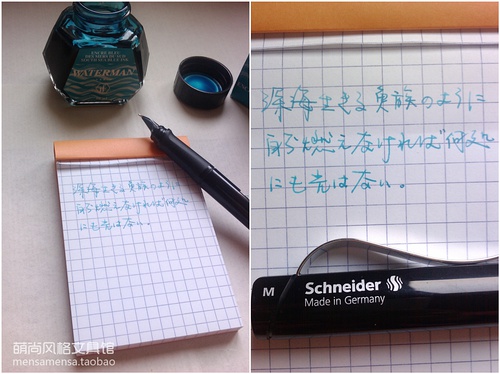 WATERMAN
深海生きる魚族のように
自ら燃えなければ何処
にも光はない。
萌尚风格文具馆
mensamensa.taobao
深海生きる魚族のように
自ら燃えなければ何処
にも光はない。
M Schneider
Made in Germany